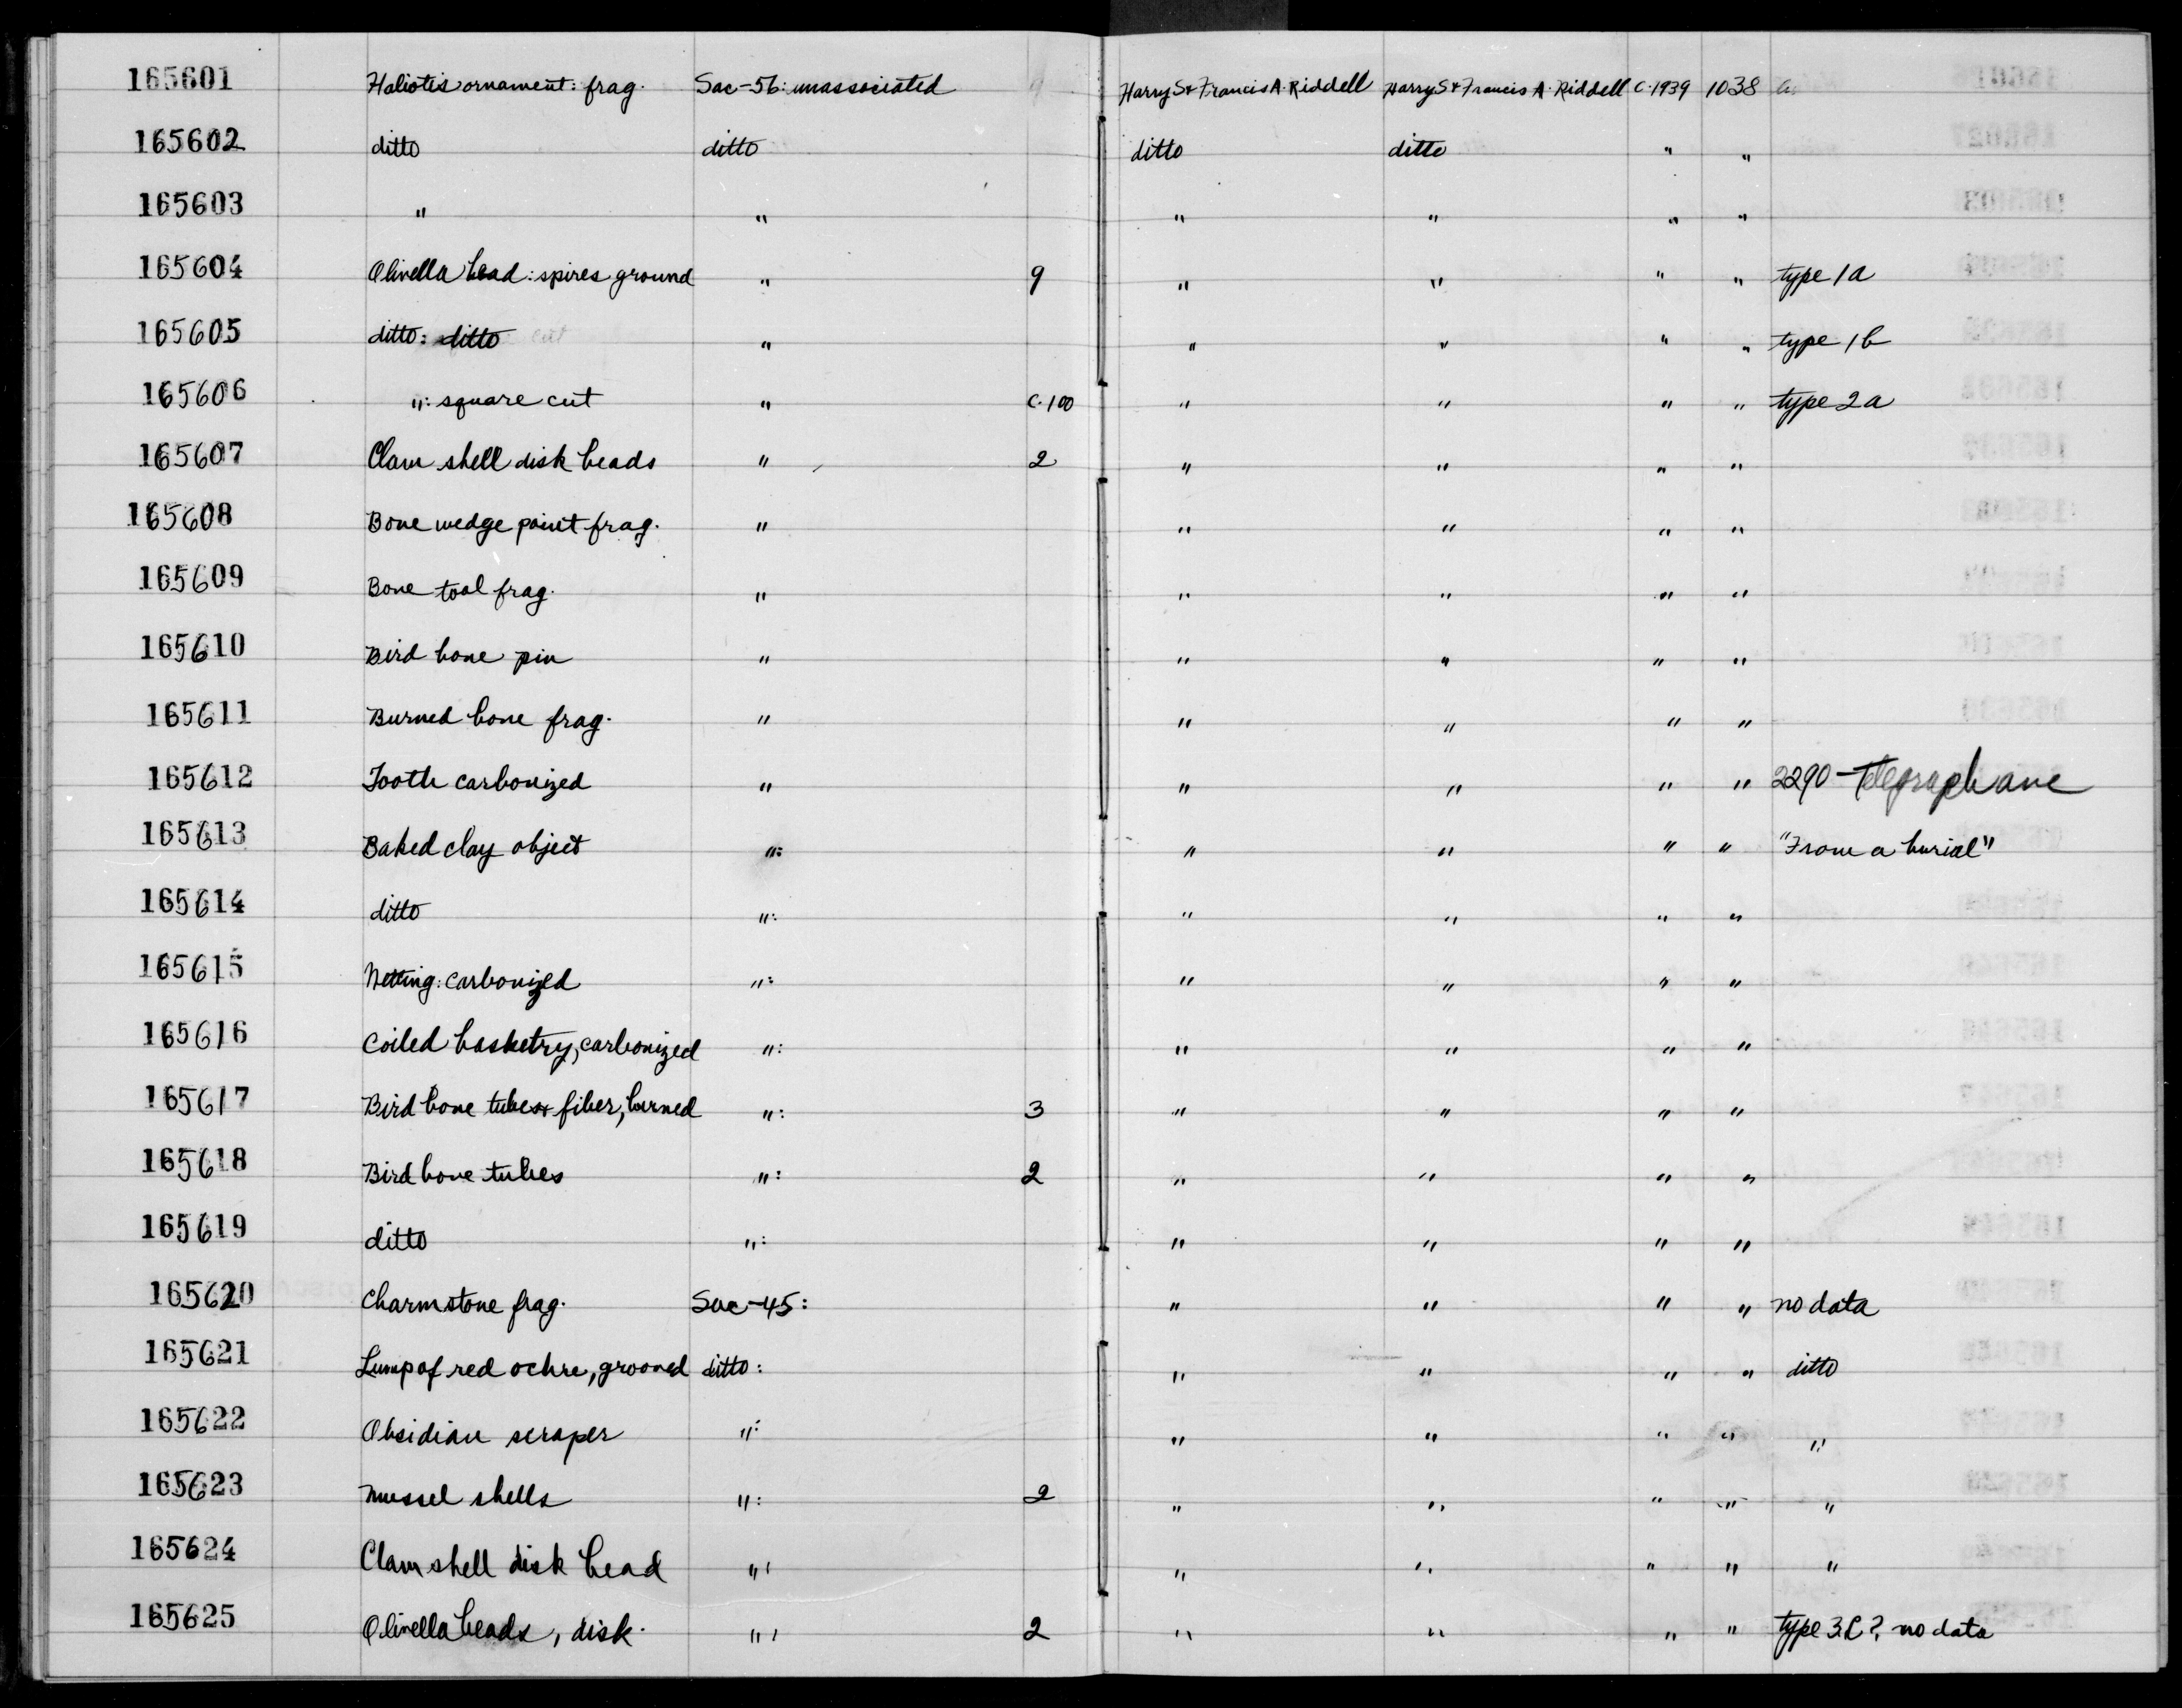 165601 Haliotis ornament: frag. Sac-56: unassociated Harry S & Francis A. Riddell Harry S & Francis A. Riddell C.1939 1038
165602 ditto ditto ditto ditto " "
165603 " " " " " "
165604 Olivella bead: spires ground " 9 " " " " type 1a
165605 ditto: ditto " " " " " type 1b
165606 ": square cut " C.100 " " " " type 2a
165607 Clam shell disk beads " 2 " " " "
165608 Bone wedge point frag. " " " " "
165609 Bone tool frag. " " " " "
165610 Bird bone pin " " " " "
165611 Burned bone frag. " " " " "
165612 Tooth carbonized " " " " " 2290 - Telegraph ave
165613 Baked clay object ": " " " " "From a burial"
165614 ditto ": " " " "
165615 Netting: carbonized ": " " " "
165616 Coiled basketry, carbonized ": " " " "
165617 Bird bone tubes & fiber, burned ": 3 " " " "
165618 Bird bone tubes ": 2 " " " "
165619 ditto ": " " " "
165620 Charmstone frag. Sac-45: " " " " no data
165621 Lump of red ochre, grooved ditto: " " " " ditto
165622 Obsidian scraper ": " " " " "
165623 Mussel shells ": 2 " " " " "
165624 Clam shell disk bead ": " " " " "
165625 Olivella beads, disk. ": 2 " " " " type 3.C? no data